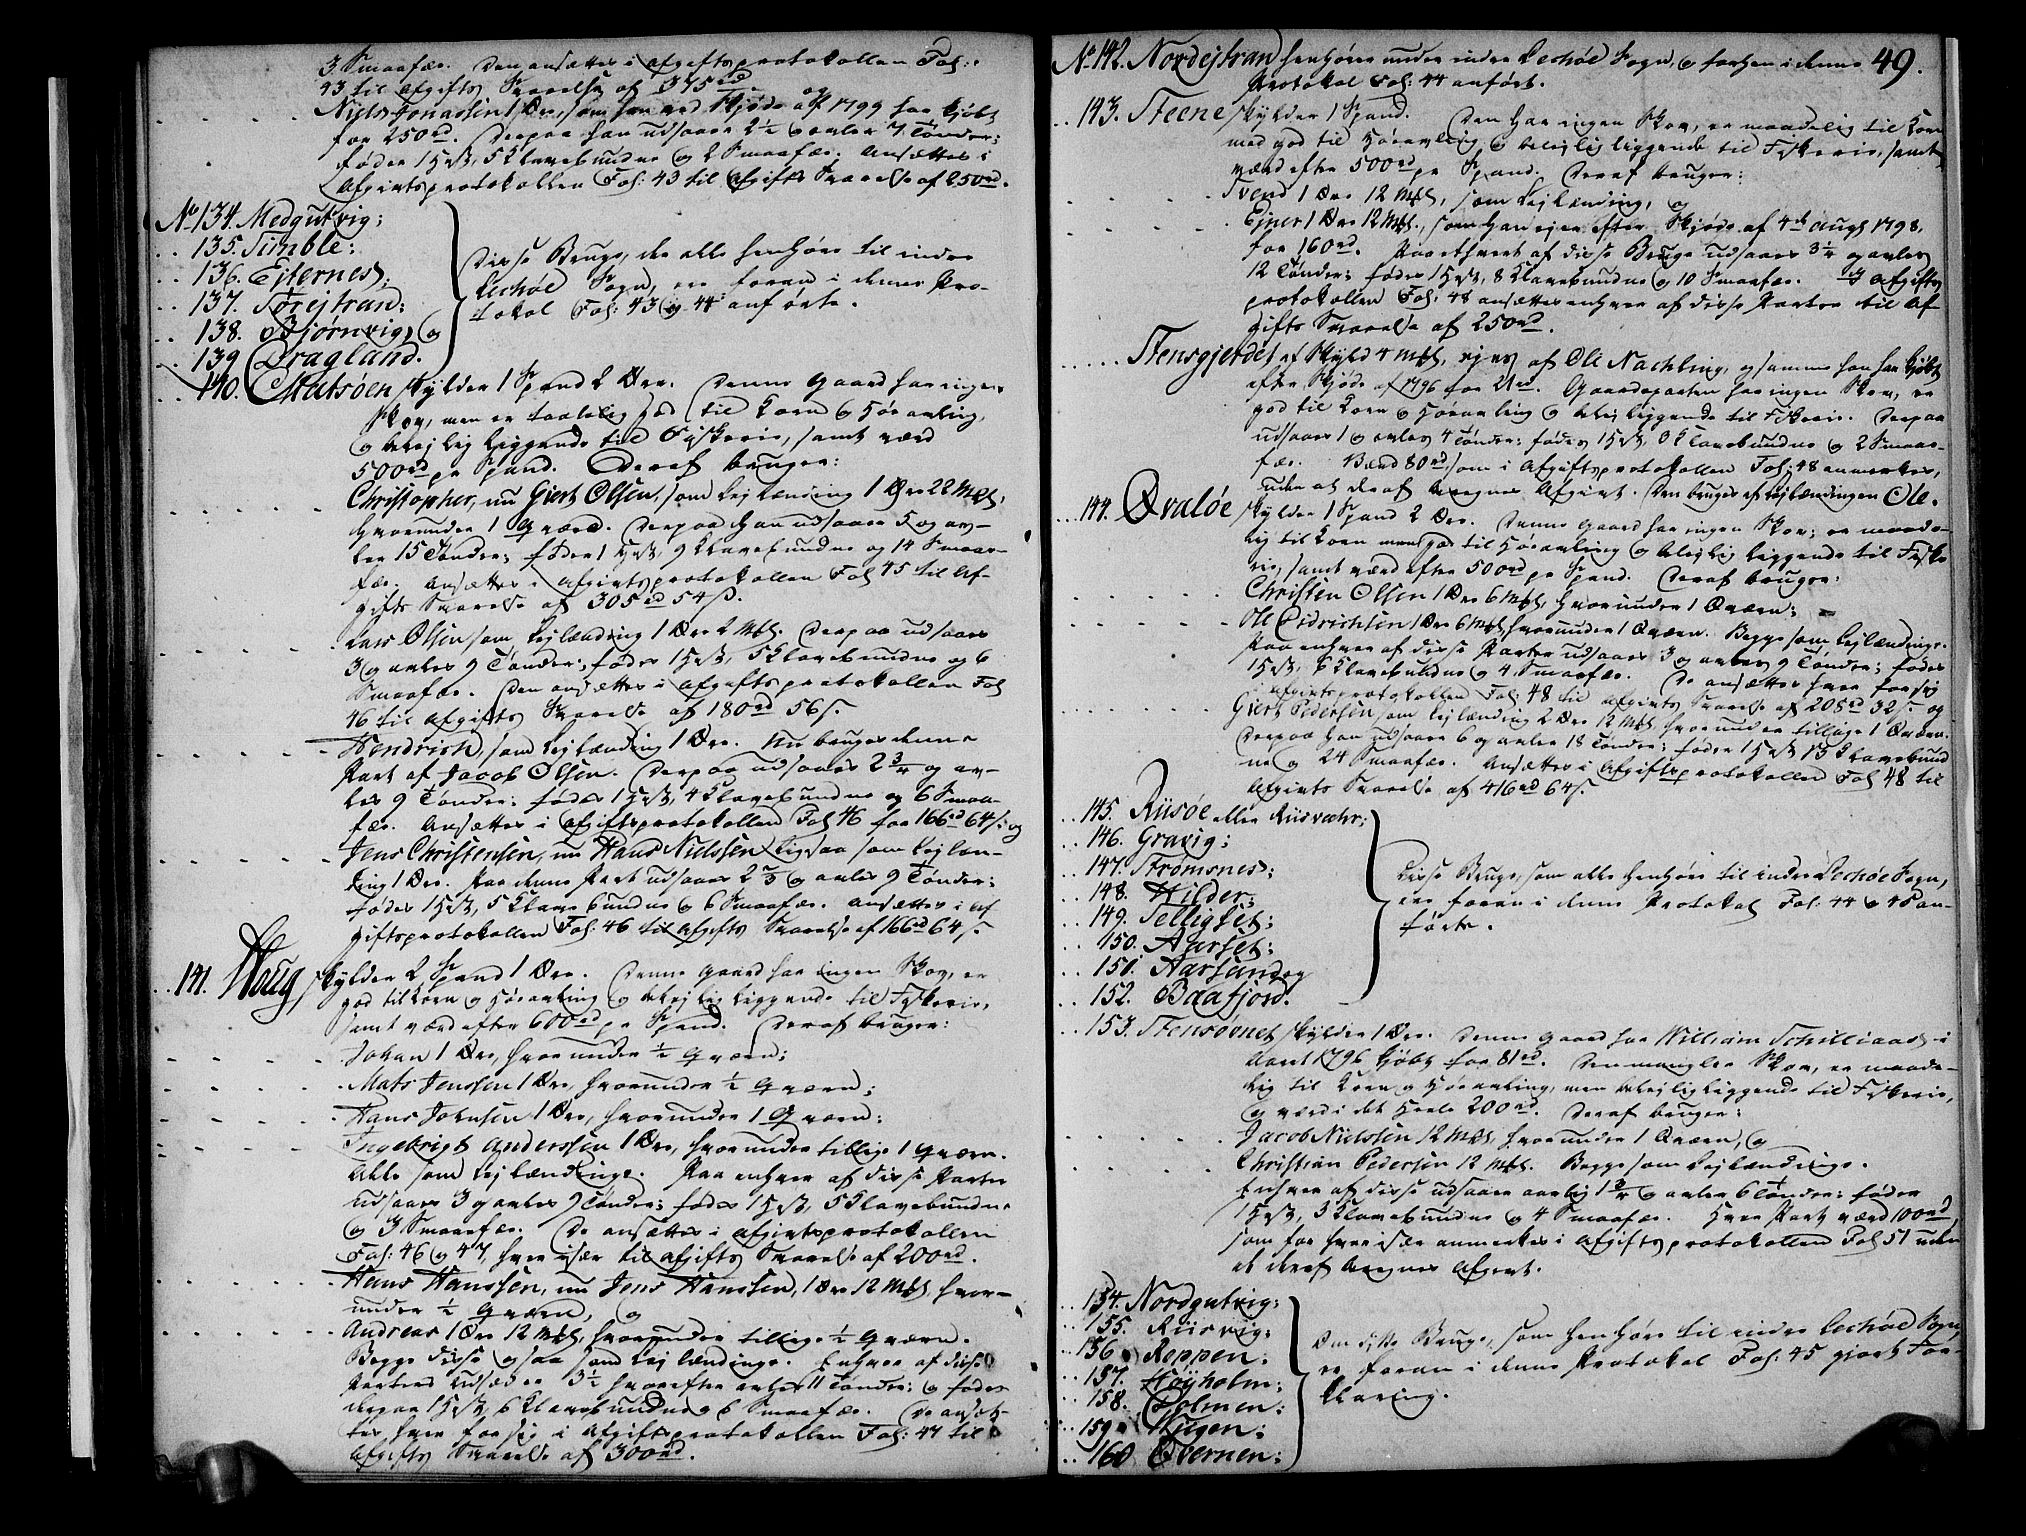 3 Smaafæ. Den ansættes i Afgiftsprotokollen Fol:
43 til Afgifts Svarelse af 375 rd og
Niels Jonassen 1 Øre, som han ved Skjøde af 1799 har kjøbt
for 250 rd. Derpaa han udsaaer 2½ og avler 7 Tønder;
føder 1 Hest, 5 Klavebundne og 2 Smaafæ. Ansættes i
Afgivtsprotokollen Fol: 43 til Afgifts Svarelse af 250 rd.
No 134. Medgutvig;
135. Timble:
136. Ejternes;
137. Sørejtran;
138. Bjørnvig, og
139. Dragland.
Disse Bruge, de alle henhøre til indre
Lechøe Sogn, ere foran i denne Pro-
tokol Fol: 43 og 44 anførte.
140. Matsøen skylder 1 Spand 2 Øre. Denne Gaard har ingen
Skov, men er taalelig god til Korn og Høeavling,
og belejlig liggende til Fiskerie, samt værd
500 rd pr Spand. Deraf bruger:
Christopher, nu Giert Olsen, som Lejlænding 1 Øre 22 Mkl,
hvorunder 1 Qværn. Derpaa han udsaaer 5 og av-
ler 15 Tønder; føder 1 Hest, 9 Klavebundne og 14 Smaa-
fæe. Ansættes i Afgivtsprotokollen Fol 45 til Af-
gifts Svarelse af 305 rd 54 s.
Lars Olsen som Lejlænding 1 Øre 2 Mkl. Derpaa udsaaes
3 og avles 9 Tønder; födes 1 Hest, 5 Klavebundne og 6
Smaafæe. Den ansættes i Afgiftsprotokollen Fol
46 til Afgifts Svarelse af 180 rd 56 s.
Hendrich, som Lejlænding 1 Øre. Nu bruges denne
Part af Jacob Olsen. Derpaa udsaaes 2¾ og av-
les 9 Tønder; födes 1 Hest, 4 Klavebundne og 6 Smaa-
fæe. Ansættes i Afgiftsprotokollen Fol 46 for 166 rd 64 s. og
Jens Christensen, nu Hans Nielssen ligesaa som Lejlæn-
ding 1 Øre. Paa denne Part udsaaes 2⅔ og avles 9 Tønder;
födes 1 Hest, 5 Klavebundne og 6 Smaafæe. Ansættes i Af
giftsprotokollen Fol: 46 til Afgifts Svarelse af 166 rd 64 s.
141. Houg, skylder 2 Spand 1 Øre. Denne Gaard har ingen Skov, er
god til Korn og Høeavling og belejlig liggende til Fiskerie,
samt værd efter 600 rd pr Spand. Deraf bruger:
Johan 1 Øre, hvorunder ½ Qværn;
Mats Jenssen 1 Øre, hvorunder ½ Qværn;
Hans Johnsen 1 Øre, hvorunder 1 Qværn:
Ingebrigt Anderssen 1 Øre, hvorunder tillige 1 Qværn.
Alle som Lejlændinge. Paa enhver af disse Parter
udsaaes 3 og avles 9 Tønder; födes 1 Hest, 5 Klavebundne
og 3 Smaafæe. De ansættes i Afgivtsprotokollen
Fol: 46 og 47, hver især til Afgifts Svarelse af 200 rd.
Hans Hanssen, nu Jens Hanssen, 1 Øre 12 Mkl hvor-
under ½ Qværn, og
Andreas 1 Øre 12 Mkl, hvorunder tillige ½ Qværn.
Begge disse ogsaa som Lejlændinge. Enhver af disse
Parters Udsæd er 3½ hvorefter avles 11 Tønder; og födes
derpaa 1 Hest, 6 Klavebundne og 6 Smaafæe. De ansæt-
tes, hver for sig i Afgiftsprotokollen Fol: 47 til
Afgifts Svarelse af 300 rd.
49.
No 142. Nordejtran henhører under indre Lechøe Sogn, og forhen i denne
Protokol Fol: 44 anført.
143. Steene skylder 1 Spand. Den har ingen Skov, er maadelig til Korn
med god til Høeavling og belejlig liggende til Fiskerie, samt
værd efter 500 rd pr Spand. Deraf bruger:
Svend 1 Øre 12 Mkl, som Lejlænding, og
Ejner 1 Øre 12 Mkl, som han ejer efter Skjøde af 4de Augt 1798,
for 160 rd. Paa ethvert af disse Bruge udsaaes 3¼ og avles
12 Tønder; födes 1 Hest, 8 Klavebundne og 10 Smaafæe. I Afgifts
protokollen Fol: 48 ansættes enhver af disse Parter til Af-
gifts Svarelse af 250 rd.
Stensgjerdet af Skyld 4 Mkl, ejes af Ole Nachling, og samme han har kjøbt
efter Skjøde af 1796 for 21 rd. Gaardeparten har ingen Skov, er
god til Korn og Høeavling og belejliggende til Fiskerie. Derpaa
udsaaes 1 og avles 4 Tønder; födes 1 Hest, 3 Klavebundne og 2 Smaa-
fæe. Værd 80 rd, som i Afgiftsprotokollen Fol: 48 anmerkes,
uden at deraf beregnes Afgivt. Den bruges af Lejlændingen Ole.
144. Qvaløe skylder 1 Spand 2 Øre. Denne Gaard har ingen Skov; er maade-
lig til Korn men god til Høeavling og belejlig liggende til Fiske
rie, samt værd efter 500 rd pr Spand. Deraf bruger:
Christen Olsen 1 Øre 6 Mkl, hvorunder 1 Qværn;
Ole Didrichsen 1 Øre 6 Mkl, hvorunder 1 Qværn. Begge som Lejlændinge.
Paa enhver af disse Parter udsaaes 3 og avles 9 Tønder; födes
1 Hest, 6 Klavebundne og 4 Smaafæe. De ansættes hver for sig
i Afgivtsprotokollen Fol: 48 til Afgivts Svarelse af 208 rd 32 s. og
Giert Pedersen som Lejlænding 2 Øre 12 Mkl hvorunder tillige 1 Qværn.
Derpaa han udsaaer 6 og avler 18 Tønder; føder 1 Hest 13 Klavebund
ne og 24 Smaafæe. Ansættes i Afgiftsprotokollen Fol 48 til
Afgivts Svarelse af 416 rd 64 s.
145. Riisøe eller Riisvær;
146. Gravig;
147. Strømsnes;
148. Hilder;
149. Telligset;
150. Aarset;
151. Aarsand og
152. Baafjord.
Disse Bruge, som alle henhøre til indre Lechøe Sogn,
ere foran i denne Protokol Fol: 44 og 45 an-
førte.
153. Stensøvnet skylder 1 Øre. Denne Gaard har William Schilliaas i
Aaret 1796 kjøbt for 81 rd. Den mangler Skov, er maade-
lig til Korn og Høeavling, men belejlig liggende til Fiskerie,
og værd i det heele 200 rd. Deraf bruger:
Jacob Nielssen 12 Mkl, hvorunder 1 Qværn, og
Christian Pedersen 12 Mkl. Begge som Lejlændinge.
Enhver af disse udsaaer aarlig 1¾ og avler 6 Tønder; føder
1 Hest, 5 Klavebundne og 4 Smaafæe. Hver Part værd 100 rd,
som for hver især anmerkes i Afgiftsprotokollen Fol 51 uden
at deraf beregnes Afgivt.
154. Nordgutvig;
155. Riisvig;
156. Reppen;
157. Høyholm;
158. Holmen;
159. Skugen;
160 Overnen;
Om disse Bruge, som henhøre til indre Lechøe Sogn,
er foran i denne Protokol Fol: 45 gjort For-
klaring.